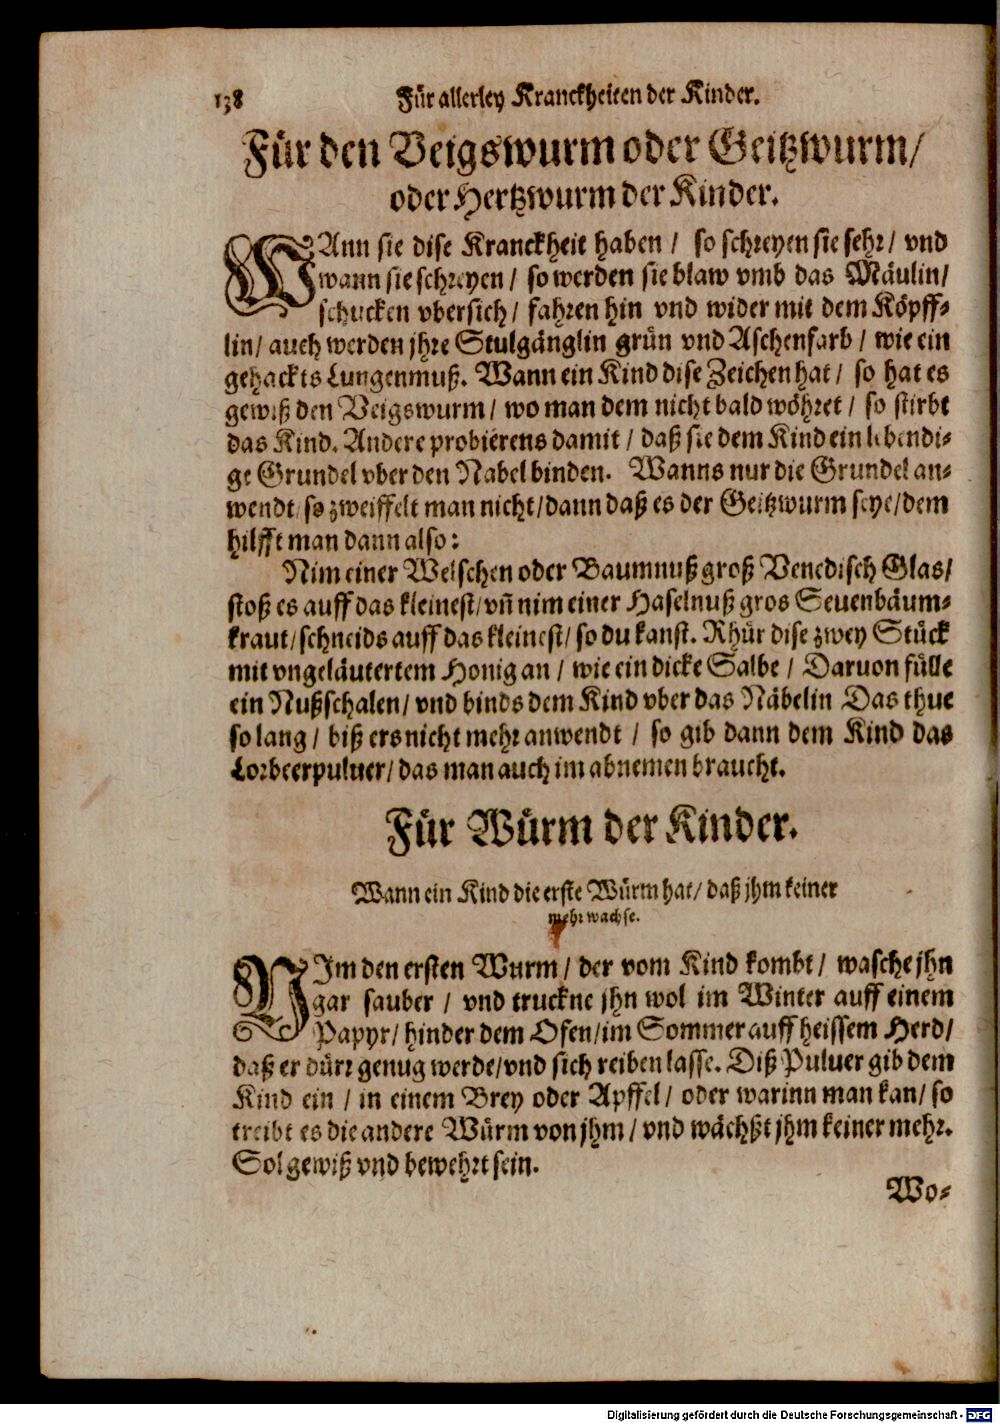 138 Für allerley Kranckheiten der Kinder.
Für den Veigswurm oder Geitzwurm/
oder Hertzwurm der Kinder.
WAnn sie dise Kranckheit haben / so schreyen sie sehr / vnd
wann sie schreyen / so werden sie blaw vmb das Mäulin/
schucken vbersich / fahren hin vnd wider mit dem Köpff-
lin / auch werden jhre Stulgänglin grün vnd Aschenfarb / wie ein
gehackts Lungenmuß. Wann ein Kind dise Zeichen hat / so hat es
gewiß den Veigswurm / wo man dem nicht bald wöhret / so stirbt
das Kind. Andere probierens damit / daß sie dem Kind ein lebendi-
ge Grundel vber den Nabel binden. Wanns nur die Grundel an-
wendt / so zweiffelt man nicht / dann daß es der Geitzwurm seye / dem
hilfft man dann also:
Nim einer Welschen oder Baumnuß groß Venedisch Glas/
stoß es auff das kleinest / vñ nim einer Haselnuß gros Seuenbäum-
kraut / schneids auff das kleinest / so du kanst. Rhür dise zwey Stück
mit vngeläutertem Honig an / wie ein dicke Salbe / Daruon fülle
ein Nußschalen / vnd binds dem Kind vber das Näbelin Das thue
so lang / biß ers nicht mehr anwendt / so gib dann dem Kind das
Lorbeerpuluer / das man auch im abnemen braucht.
Für Würm der Kinder.
Wann ein Kind die erste Würm hat / daß jhm keiner
mehr wachse.
NIm den ersten Wurm / der vom Kind kombt / wasche jhn
gar sauber / vnd truckne jhn wol im Winter auff einem
Papyr / hinder dem Ofen / im Sommer auff heissem Herd/
daß er dürr genug werde / vnd sich reiben lasse. Diß Puluer gib dem
Kind ein / in einem Brey oder Apffel / oder warinn man kan / so
treibt es die andere Würm von jhm / vnd wächßt jhm keiner mehr.
Sol gewiß vnd bewehrt sein.
Wo-
Digitalisierung gefördert durch die Deutsche Forschungsgemeinschaft - DFG